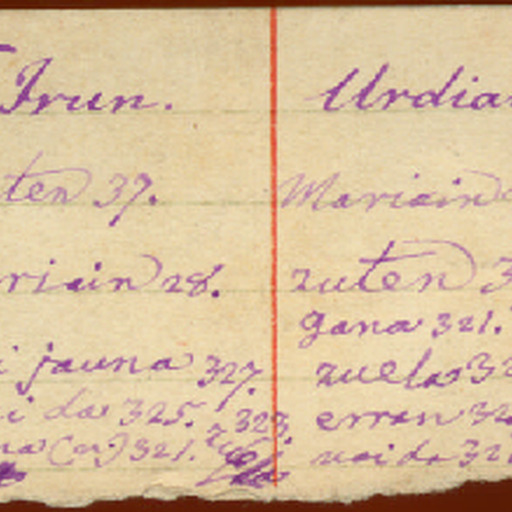 Irun.
ten 37.
riain 28.
i jauna 327.
i da 325. 323.
na (n) 321.
Urdia
Mariain
zuten 3
gana 321.
zuela 32
erran 32
naida 32